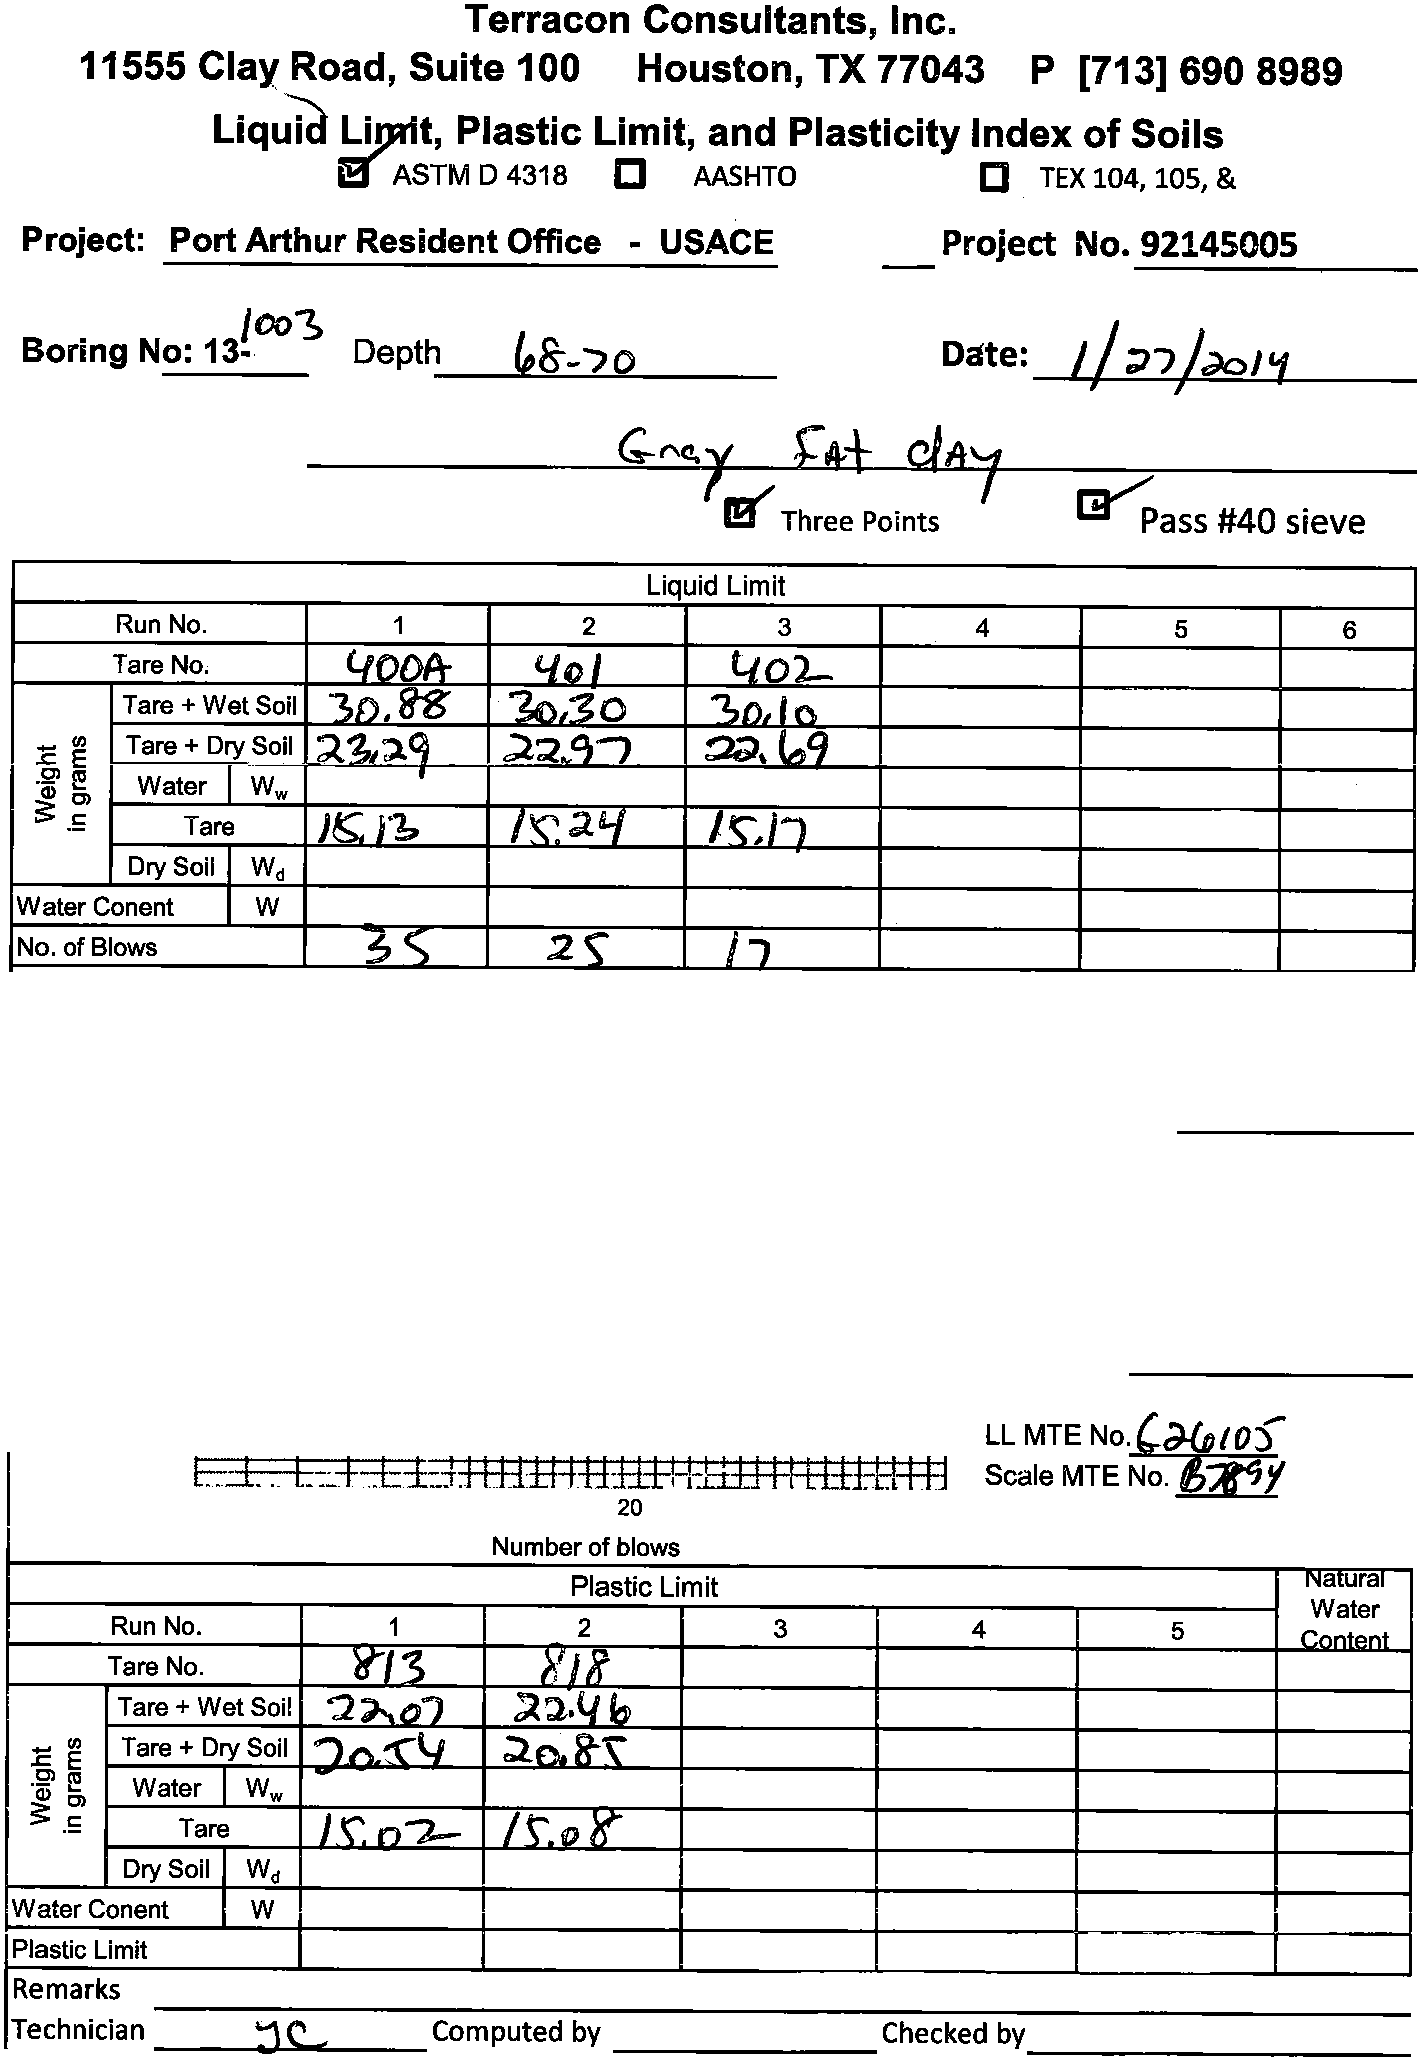 Terracon Consultants, Inc.
11555 Clay Road, Suite 100 Houston, TX 77043 P [713] 690 8989
Liquid Limit, Plastic Limit, and Plasticity Index of Soils
ASTM D 4318 AASHTO TEX 104, 105, &
Project: Port Arthur Resident Office - USACE Project No. 92145005
Boring No: 13-1003 Depth 68-70 Date: 1/27/2014
Gray Fat Clay
Three Points Pass #40 sieve
Liquid Limit
Run No. 1 2 3 4 5 6
Tare No. 400A 401 402
Weight in grams
Tare + Wet Soil 30.88 30.30 30.10
Tare + Dry Soil 23.29 22.97 22.69
Water Ww
Tare 15.13 15.24 15.17
Dry Soil Wd
Water Conent W
No. of Blows 35 25 17
LL MTE No. 626105
Scale MTE No. B7894
20
Number of blows
Plastic Limit Natural Water Content
Run No. 1 2 3 4 5
Tare No. 813 818
Weight in grams
Tare + Wet Soil 22.07 22.46
Tare + Dry Soil 20.54 20.85
Water Ww
Tare 15.02 15.08
Dry Soil Wd
Water Conent W
Plastic Limit
Remarks
Technician JC Computed by Checked by